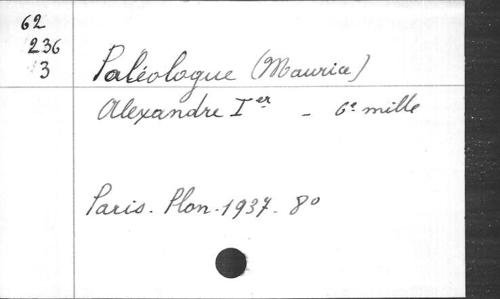 62
236
3
Paléologue (Maurice)
Alexandre Ier - 6e mille
Paris. Plon. 1937. 8o